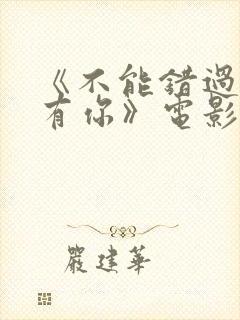 《不能错過
有你》電影
嚴建華